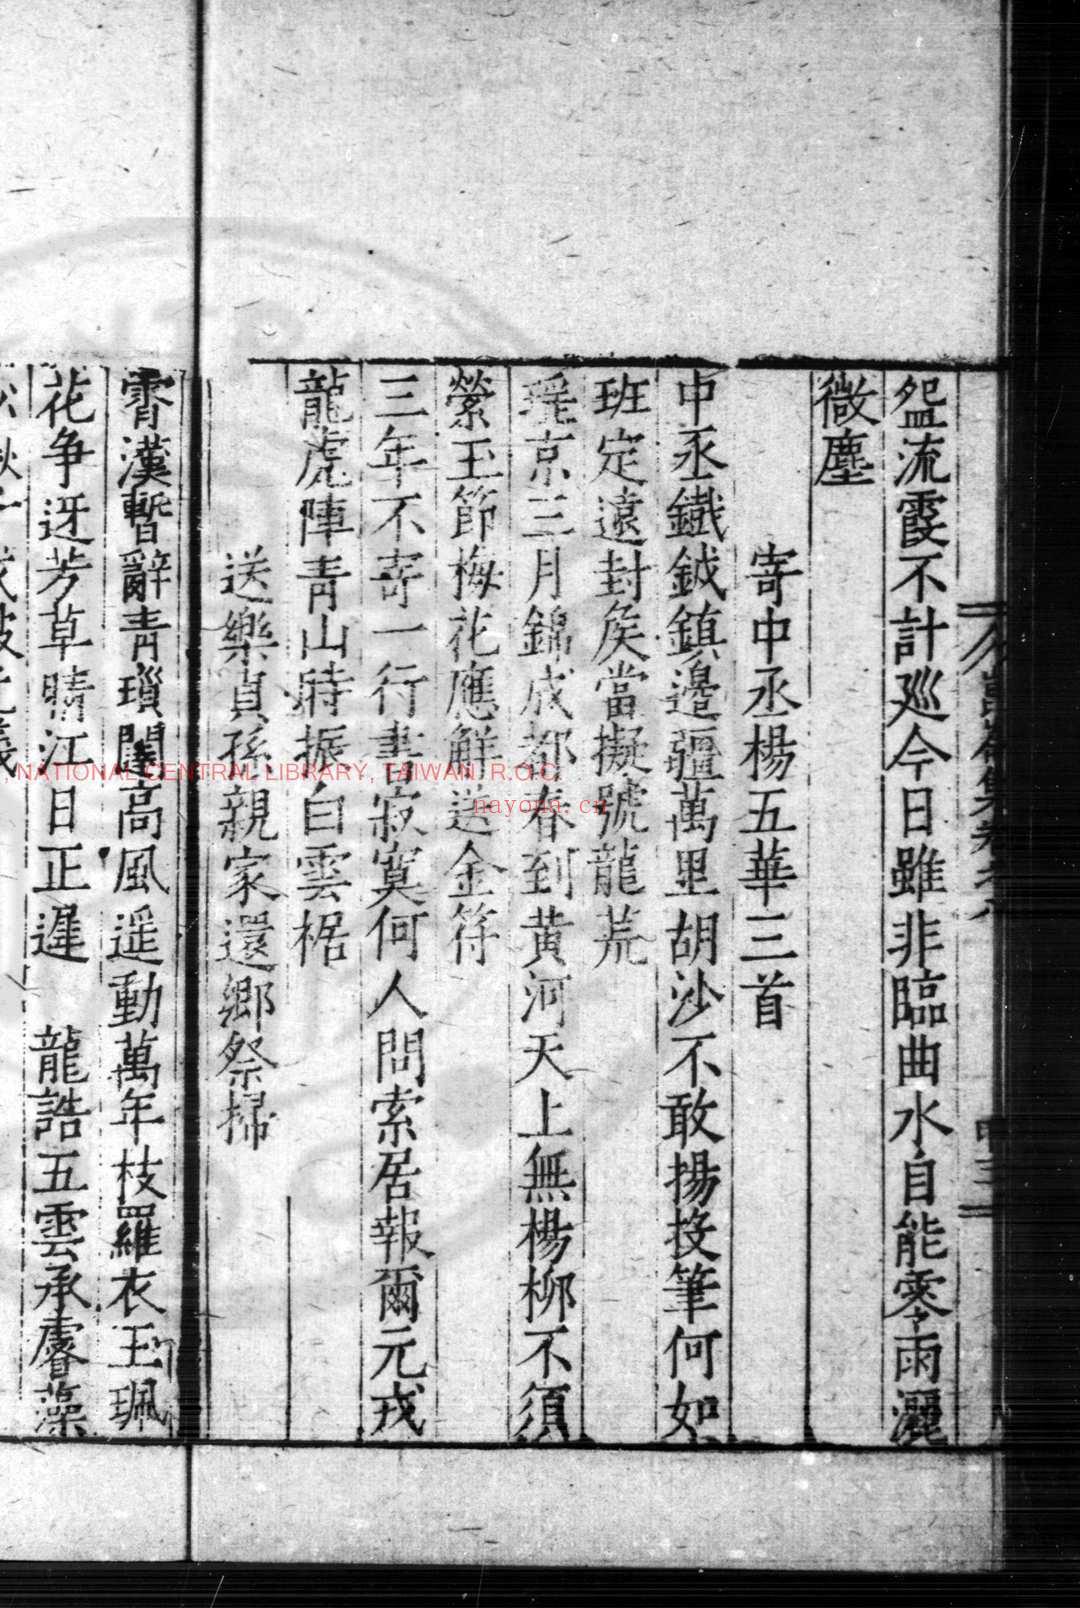 盌流霞不計廵今日雖非臨曲水自能零雨灑
微塵
寄中丞楊五華三首
中丞鐵鉞鎮邊疆萬里胡沙不敢揚投筆何如
班定遠封矦當擬號龍荒
瑤京三月錦成都春到黃河天上無楊柳不須
縈玉節梅花應解送金符
三年不寄一行書寂寞何人問索居報爾元戎
龍虎陣青山時振白雲裾
送樂貞孫親家還鄉祭掃
霄漢暫辭青瑣闥高風遥動萬年枝羅衣玉珮
花争迓芳草晴江日正遲 龍誥五雲承睿藻
NATIONAL CENTRAL LIBRARY, TAIWAN R.O.C.
nayona.cn